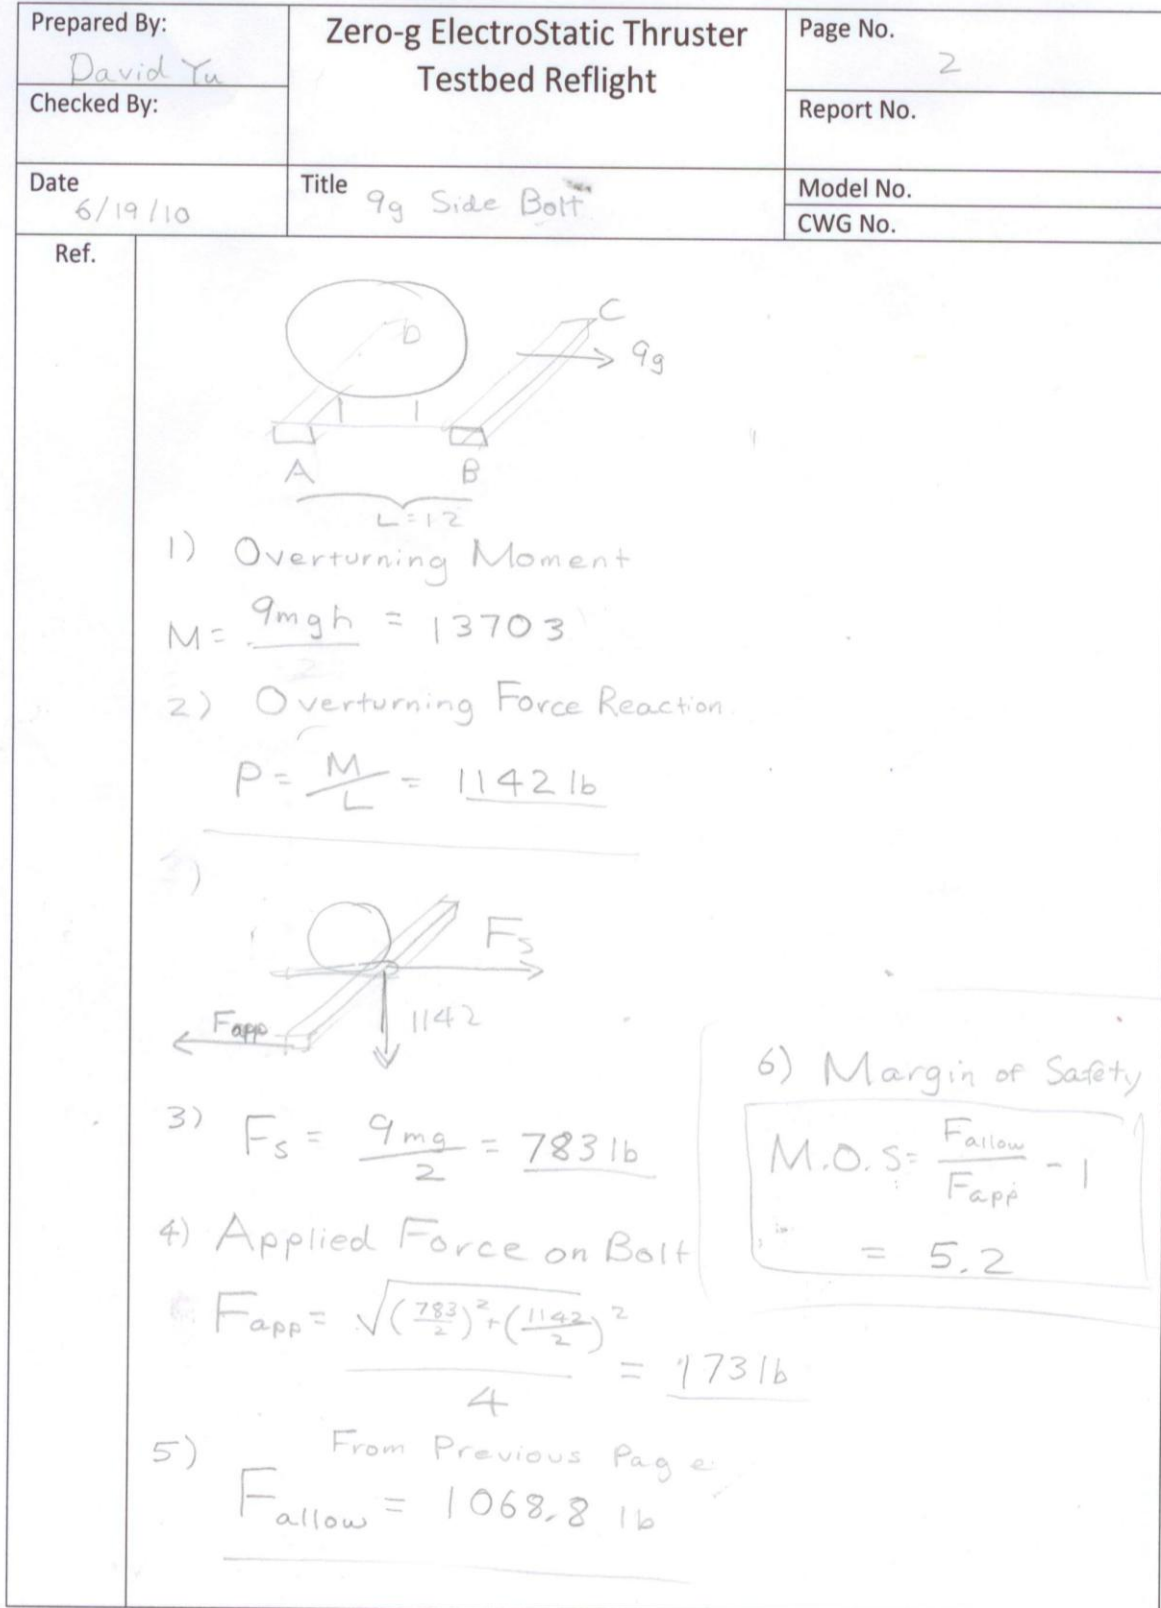 Prepared By:
David Yu
Checked By:
Zero-g ElectroStatic Thruster
Testbed Reflight
Page No.
2
Report No.
Date
6/19/10
Title 9g Side Bolt
Model No.
CWG No.
Ref.
D
C
9g
A
B
L=12
1) Overturning Moment
M = 9mgh = 13703
2) Overturning Force Reaction
P = M/L = 1142 lb
Fs
Fapp
1142
3) Fs = 9mg/2 = 783 lb
4) Applied Force on Bolt
Fapp = √(783/2)²+(1142/2)² / 4 = 173 lb
5) From Previous Page
Fallow = 1068.8 lb
6) Margin of Safety
M.O.S = Fallow/Fapp - 1
= 5.2